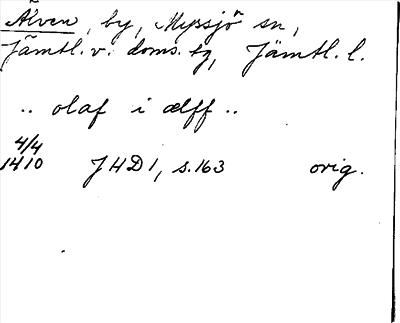 Älven, by, Myssjö sn,
Jämtl. v. doms. tg, Jämtl. l.
.. olaf i ælff ..
4/4
1410 JHD 1, s. 163 orig.